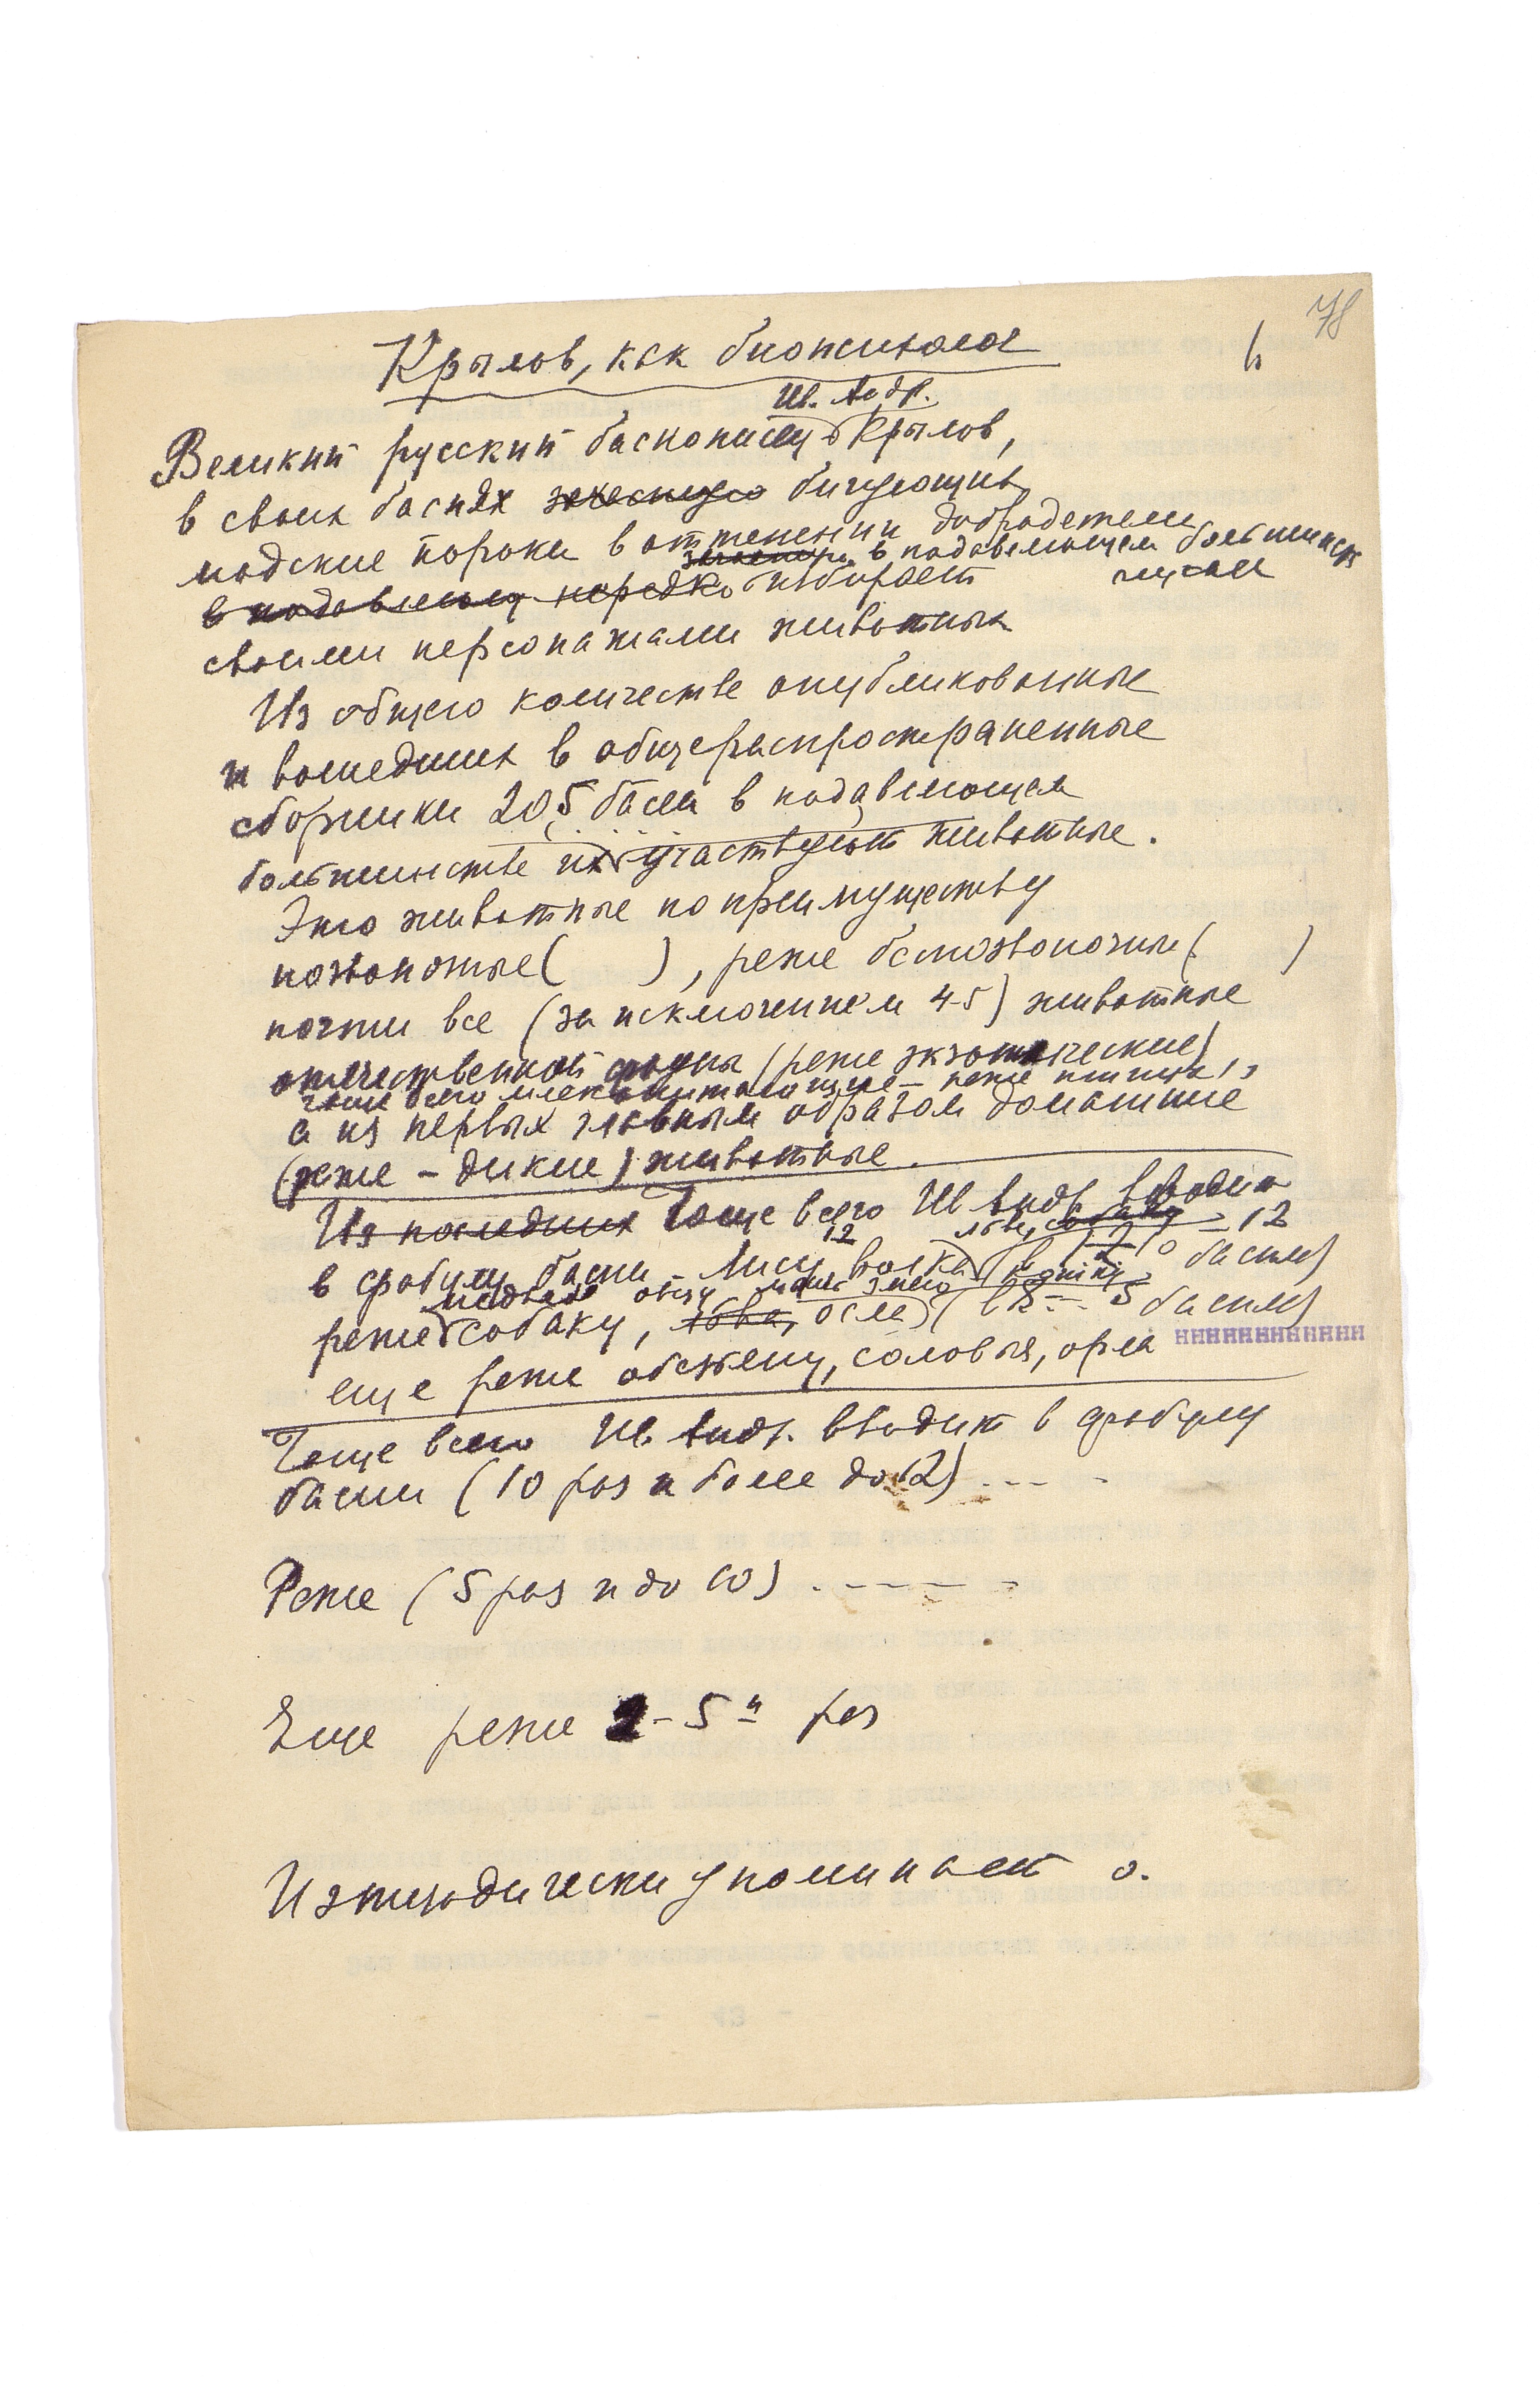 78
Крылов, как биопсихолог
Ив. Андр.
Великий русский баснописец Крылов,
в своих баснях бичующих
людские пороки в оттенении добродетели
в подавляющем большинстве
случаев
в подавляющ нередко избирает
своими персонажами животных
Из общего количества опубликованные
и вошедших в общераспространенные
сборники 205 басен в подавляющем
большинстве их участвуют животные.
Это животные по преимуществу
позвоночные ( ), реже беспозвоночные ( )
почти все (за исключением 4-5) животные
отечественной фауны (реже экзотические),
чаще всего млекопитающие – реже птицы,
а из первых главным образом домашние
(реже – дикие) животные.
Из последних Чаще всего Ив Андр вводит
12 льва, собаку 12
в фабулу басни – Лису, волка басни)
медведя овцу змею
реже собаку, льва, осла басни)
ННННННННННННН
еще реже обезьяну, соловья, орла
Чаще всего Ив Андр. вводит в фабулу
басни (10 раз и более до 12) ... -
Реже (5 раз и до 10) . - - - - -
Еще реже 2-5 и раз
И эпизодически упоминает о.